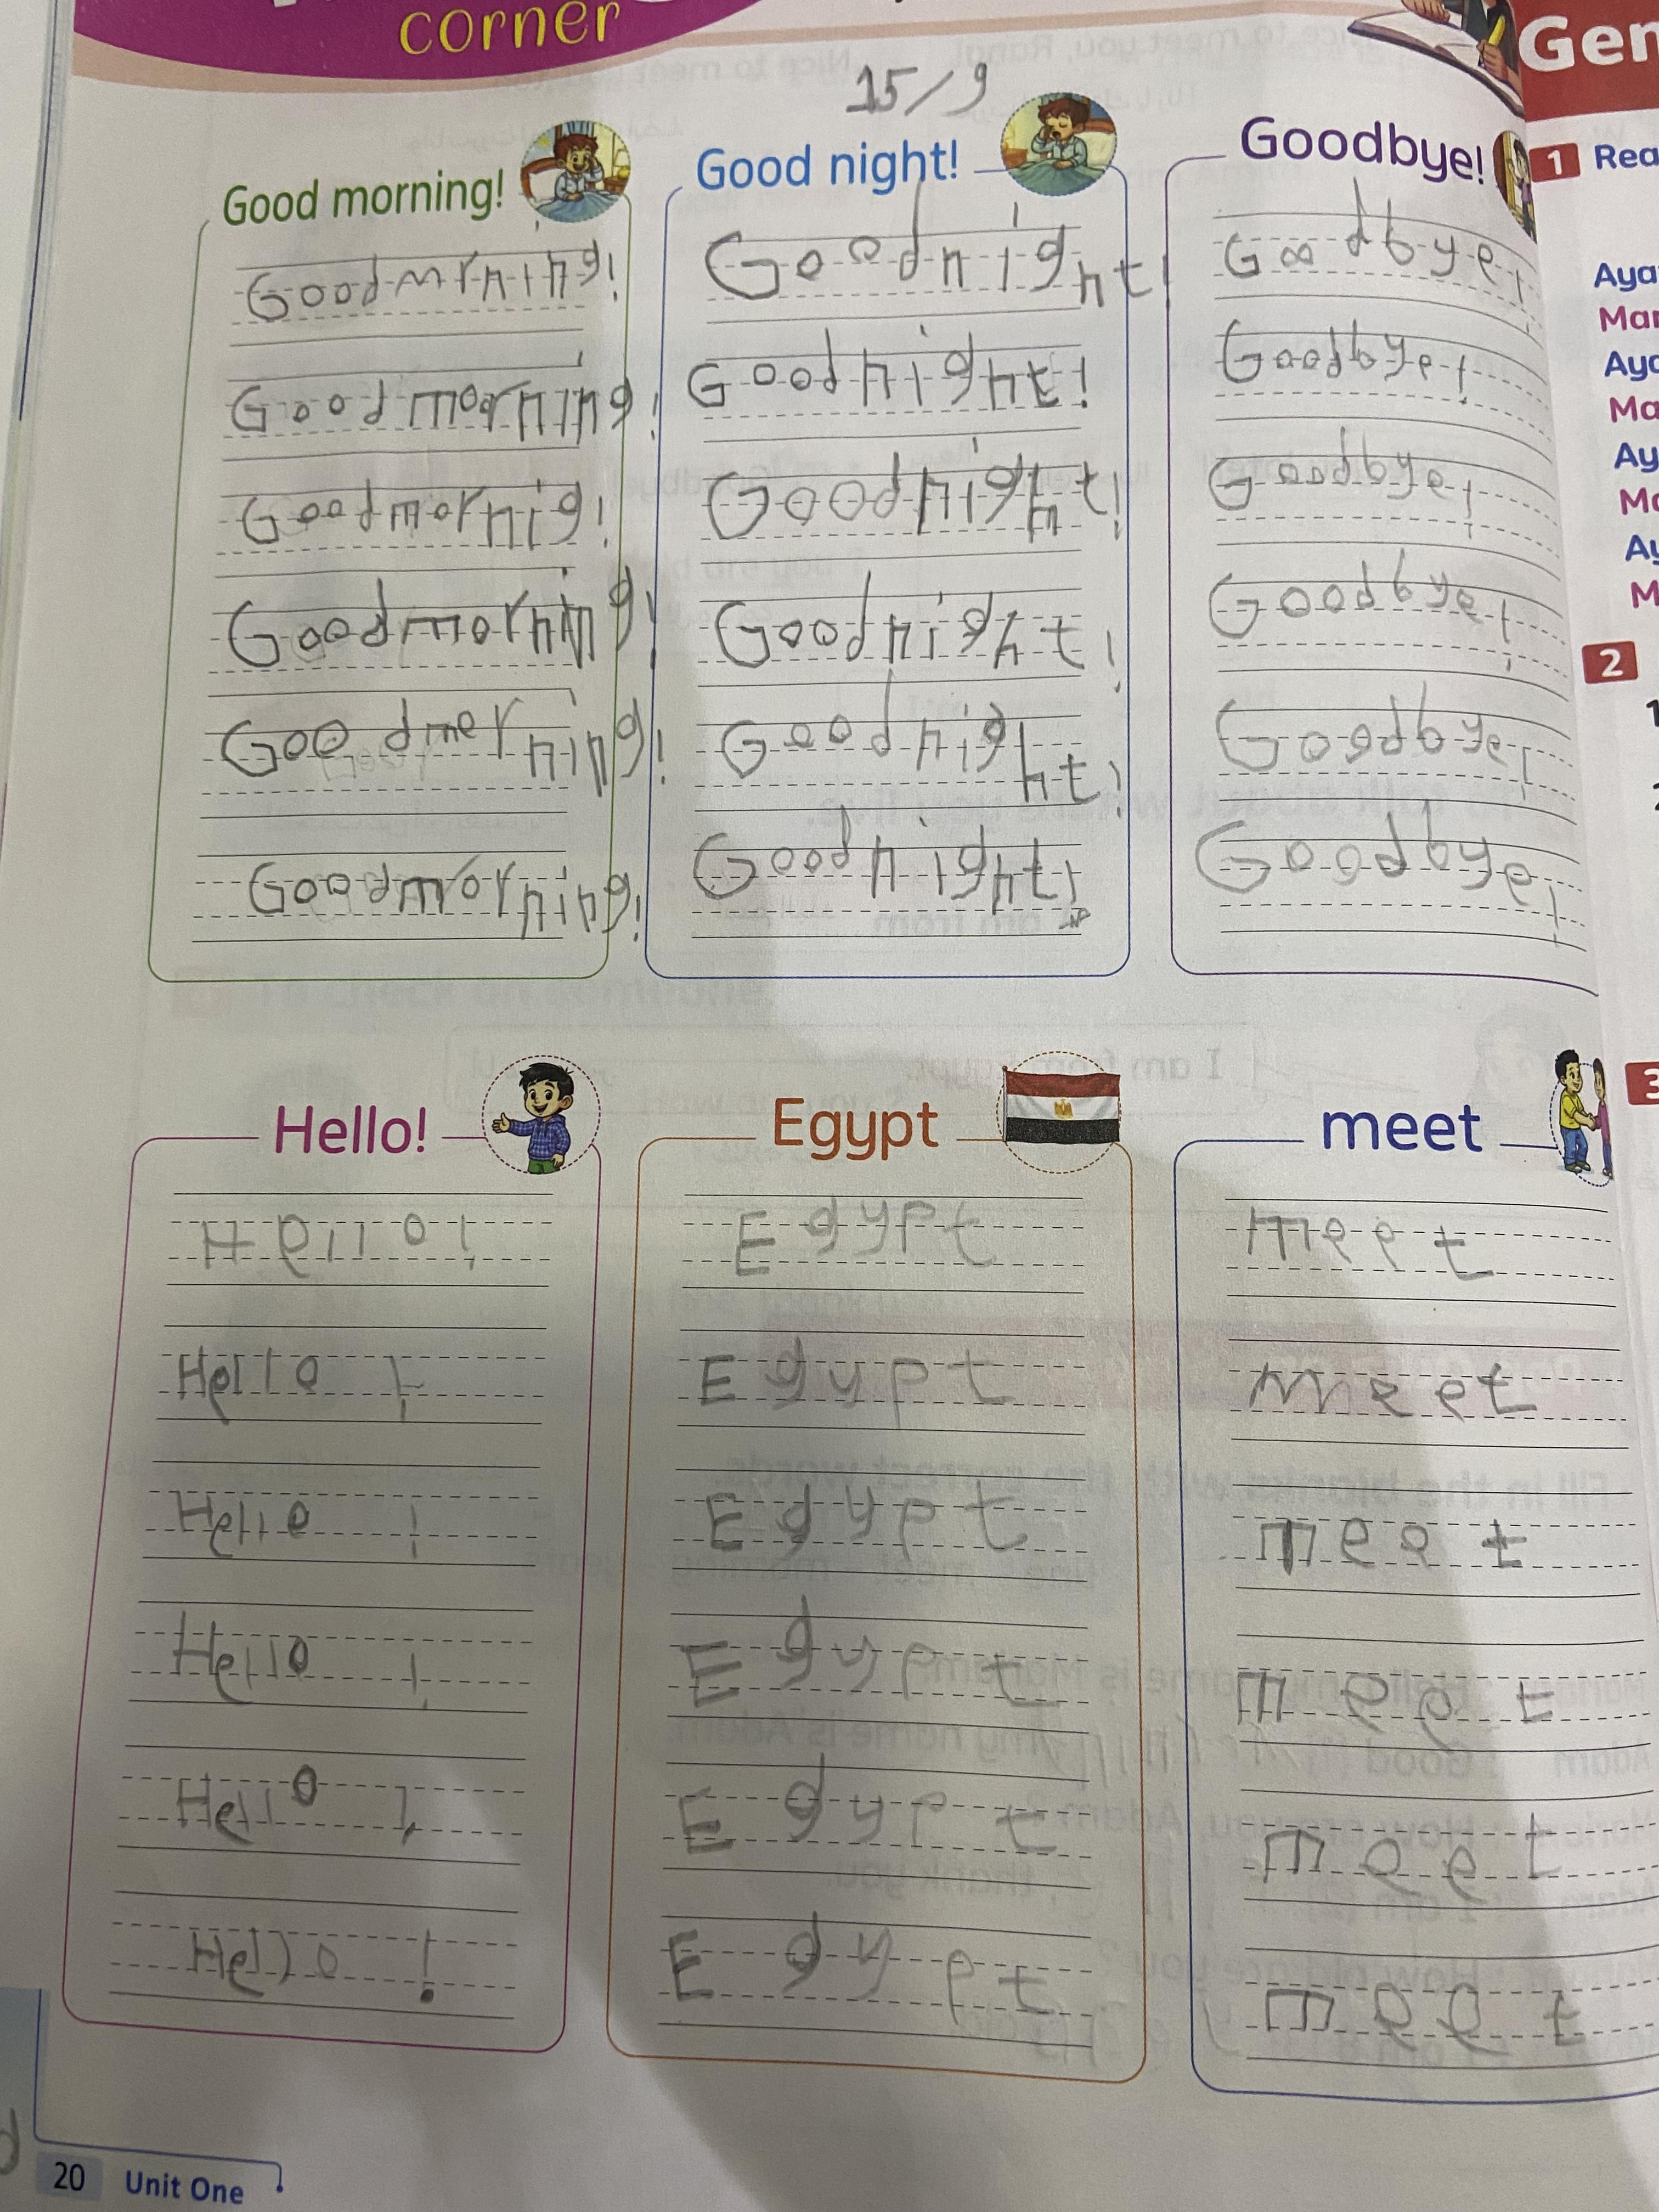 corner
Gen
15/9
Good morning!
Good mrning!
Good morning!
Good mornig!
Good morning!
Good morning!
Good morning!
Good night!
Good night!
Good night!
Good night!
Good night!
Good night!
Good night!
Goodbye!
Goodbye!
Goodbye!
Goodbye!
Goodbye!
Goodbye!
Goodbye!
Hello!
Hello!
Hello!
Hello!
Hello!
Hello!
Hello!
Egypt
Egypt
Egypt
Egypt
Egypt
Egypt
Egypt
meet
meet
meet
meet
meet
meet
meet
1 Rea
Aya
Mar
Aya
Ma
Ay
Ma
Ay
M
2
1
3
20 Unit One